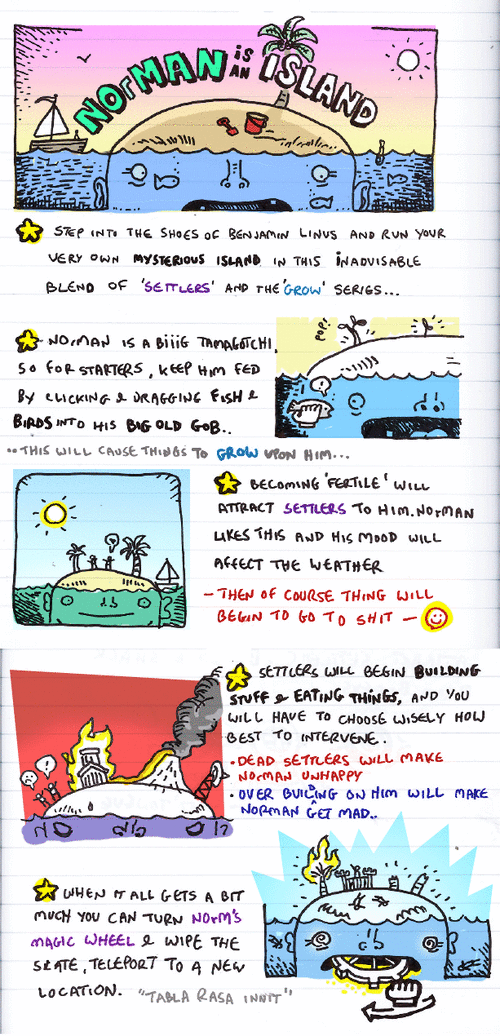 NOrMAN is AN ISLAND
STEP INTO THE SHOES OF BENJAMIN LINUS AND RUN YOUR
VERY OWN MYSTERIOUS ISLAND IN THIS INADVISABLE
BLEND OF 'SETTLERS' AND THE 'GROW' SERIES...
NOrMAN IS A BiiiG TAMAGOTCHI,
SO FOR STARTERS, KEEP HIM FED
BY CLICKING & DRAGGING FISH &
BIRDS INTO HIS BIG OLD GOB..
POP!
.. THIS WILL CAUSE THINGS TO GROW UPON HIM...
BECOMING 'FERTILE' WILL
ATTRACT SETTLERS TO HIM. NOrMAN
LIKES THIS AND HIS MOOD WILL
AFFECT THE WEATHER
- THEN OF COURSE THING WILL
BEGIN TO GO TO SHIT -
SETTLERS WILL BEGIN BUILDING
STUFF & EATING THINGS, AND YOU
WILL HAVE TO CHOOSE WISELY HOW
BEST TO INTERVENE.
• DEAD SETTLERS WILL MAKE
NOrMAN UNHAPPY
• OVER BUILDING ON HIM WILL MAKE
NORMAN GET MAD..
WHEN IT ALL GETS A BIT
MUCH YOU CAN TURN NOrM'S
MAGIC WHEEL & WIPE THE
SLATE, TELEPORT TO A NEW
LOCATION. "TABLA RASA INNIT"